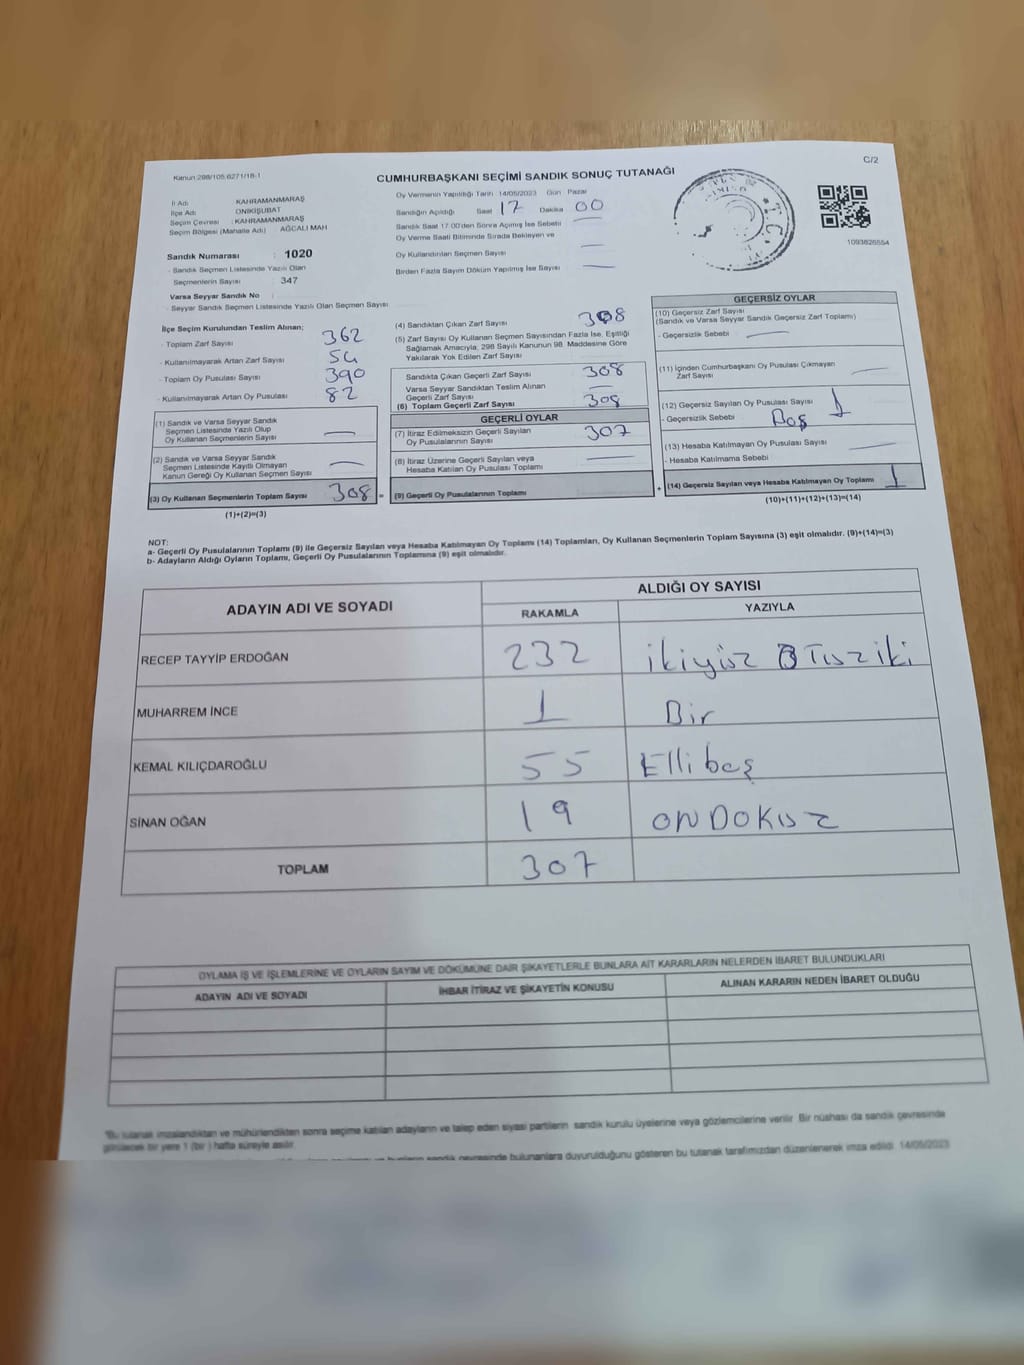 Kanun:298/105,6271/18-1
C/2
CUMHURBAŞKANI SEÇİMİ SANDIK SONUÇ TUTANAĞI
İl Adı KAHRAMANMARAŞ
İlçe Adı ONİKİŞUBAT
Seçim Çevresi : KAHRAMANMARAŞ
Seçim Bölgesi (Mahalle Adı) AĞCALI MAH
Sandık Numarası : 1020
- Sandık Seçmen Listesinde Yazılı Olan
Seçmenlerin Sayısı : 347
Varsa Seyyar Sandık No :
- Seyyar Sandık Seçmen Listesinde Yazılı Olan Seçmen Sayısı
Oy Vermenin Yapıldığı Tarih 14/05/2023 Gün Pazar
Sandığın Açıldığı Saat 17 Dakika 00
Sandık Saat 17.00'den Sonra Açılmış İse Sebebi
Oy Verme Saati Bitiminde Sırada Bekleyen ve
Oy Kullandırılan Seçmen Sayısı
Birden Fazla Sayım Döküm Yapılmış İse Sayısı
1093826554
İlçe Seçim Kurulundan Teslim Alınan;
- Toplam Zarf Sayısı 362
- Kullanılmayarak Artan Zarf Sayısı 54
- Toplam Oy Pusulası Sayısı 390
- Kullanılmayarak Artan Oy Pusulası 82
(1) Sandık ve Varsa Seyyar Sandık
Seçmen Listesinde Yazılı Olup
Oy Kullanan Seçmenlerin Sayısı
(2) Sandık ve Varsa Seyyar Sandık
Seçmen Listesinde Kayıtlı Olmayan
Kanun Gereği Oy Kullanan Seçmen Sayısı
(3) Oy Kullanan Seçmenlerin Toplam Sayısı 308 =
(1)+(2)=(3)
(4) Sandıktan Çıkan Zarf Sayısı 308
(5) Zarf Sayısı Oy Kullanan Seçmen Sayısından Fazla İse, Eşitliği
Sağlamak Amacıyla, 298 Sayılı Kanunun 98. Maddesine Göre
Yakılarak Yok Edilen Zarf Sayısı
Sandıkta Çıkan Geçerli Zarf Sayısı 308
Varsa Seyyar Sandıktan Teslim Alınan
Geçerli Zarf Sayısı
(6) Toplam Geçerli Zarf Sayısı 308
GEÇERLİ OYLAR
(7) İtiraz Edilmeksizin Geçerli Sayılan
Oy Pusulalarının Sayısı 307
(8) İtiraz Üzerine Geçerli Sayılan veya
Hesaba Katılan Oy Pusulası Toplamı
(9) Geçerli Oy Pusulalarının Toplamı +
GEÇERSİZ OYLAR
(10) Geçersiz Zarf Sayısı
(Sandık ve Varsa Seyyar Sandık Geçersiz Zarf Toplamı)
- Geçersizlik Sebebi
(11) İçinden Cumhurbaşkanı Oy Pusulası Çıkmayan
Zarf Sayısı
(12) Geçersiz Sayılan Oy Pusulası Sayısı 1
- Geçersizlik Sebebi Boş
(13) Hesaba Katılmayan Oy Pusulası Sayısı
- Hesaba Katılmama Sebebi
(14) Geçersiz Sayılan veya Hesaba Katılmayan Oy Toplamı 1
(10)+(11)+(12)+(13)=(14)
NOT:
a- Geçerli Oy Pusulalarının Toplamı (9) ile Geçersiz Sayılan veya Hesaba Katılmayan Oy Toplamı (14) Toplamları, Oy Kullanan Seçmenlerin Toplam Sayısına (3) eşit olmalıdır. (9)+(14)=(3)
b- Adayların Aldığı Oyların Toplamı, Geçerli Oy Pusulalarının Toplamına (9) eşit olmalıdır.
ADAYIN ADI VE SOYADI
ALDIĞI OY SAYISI
RAKAMLA YAZIYLA
RECEP TAYYİP ERDOĞAN 232 ikiyüz oTuziki
MUHARREM İNCE 1 Bir
KEMAL KILIÇDAROĞLU 55 Ellibeş
SİNAN OĞAN 19 ONDOKUZ
TOPLAM 307
OYLAMA İŞ VE İŞLEMLERİNE VE OYLARIN SAYIM VE DÖKÜMÜNE DAİR ŞİKAYETLERLE BUNLARA AİT KARARLARIN NELERDEN İBARET BULUNDUKLARI
ADAYIN ADI VE SOYADI İHBAR İTİRAZ VE ŞİKAYETİN KONUSU ALINAN KARARIN NEDEN İBARET OLDUĞU
"Bu tutanak imzalandıktan ve mühürlendikten sonra seçime katılan adayların ve talep eden siyasi partilerin sandık kurulu üyelerine veya gözlemcilerine verilir. Bir nüshası da sandık çevresinde
görülecek bir yere 1 (bir) hafta süreyle asılır.
sandık çevresinde bulunanlara duyurulduğunu gösteren bu tutanak tarafımızdan düzenlenerek imza edildi. 14/05/2023